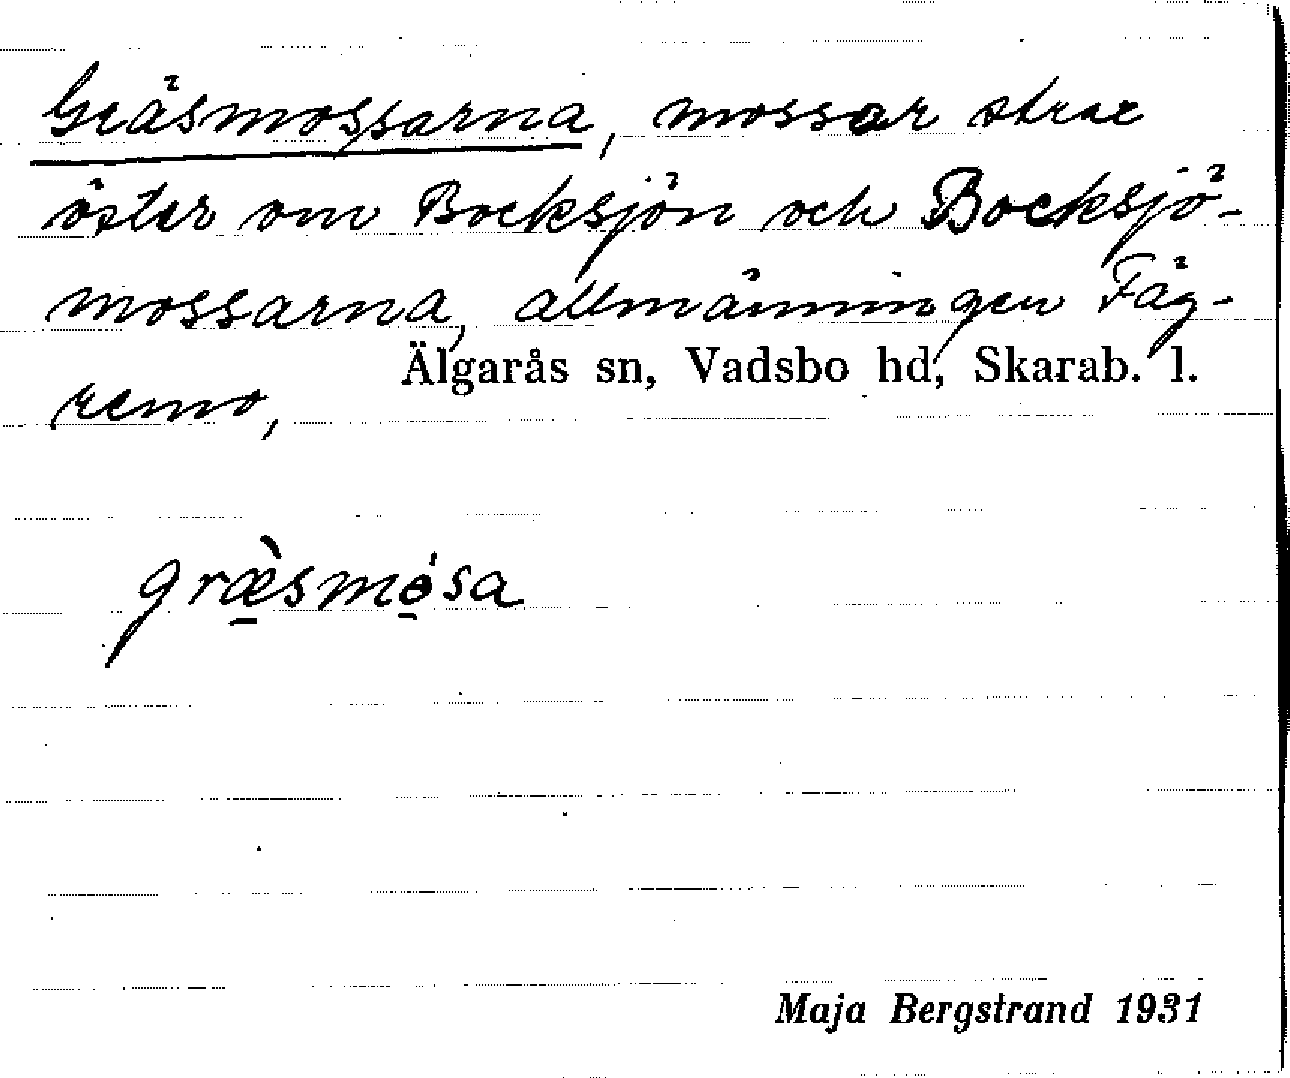 Gräsmossarna, mossar strax
öster om Bocksjön och Bocksjö-
mossarna, allmänningen Fäg-
Älgarås sn, Vadsbo hd, Skarab. l.
remo,
græ̱̀smɵ̱́sa
Maja Bergstrand 1931